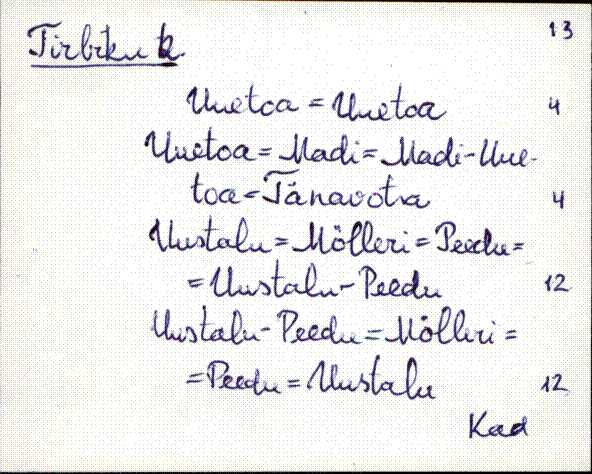 Tirbiku k 13
Uuetoa = Uuetoa 4
Uuetoa = Madi = Madi-Uue-
toa = Tänavotsa 4
Uustalu = Mölleri = Peedu =
= Uustalu-Peedu 12
Uustalu-Peedu = Mölleri =
= Peedu = Uustalu 12
Kad